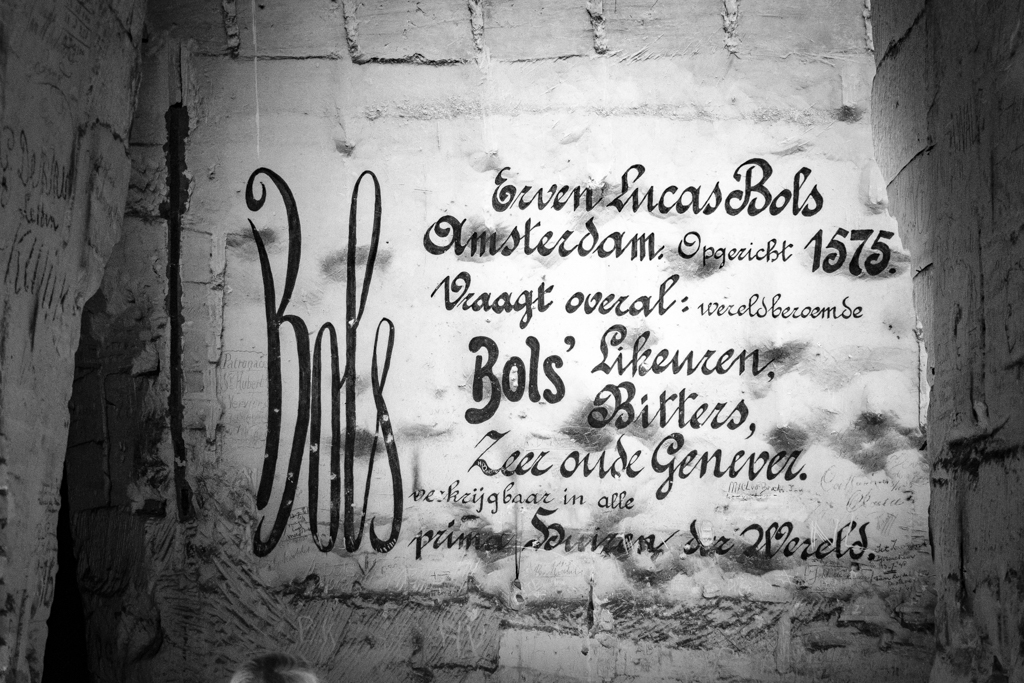 Bols
Erven Lucas Bols
Amsterdam. Opgericht 1575.
Vraagt overal: wereldberoemde
Bols' Likeuren,
Bitters,
Zeer oude Genever.
verkrijgbaar in alle
prima Huizen der Wereld.